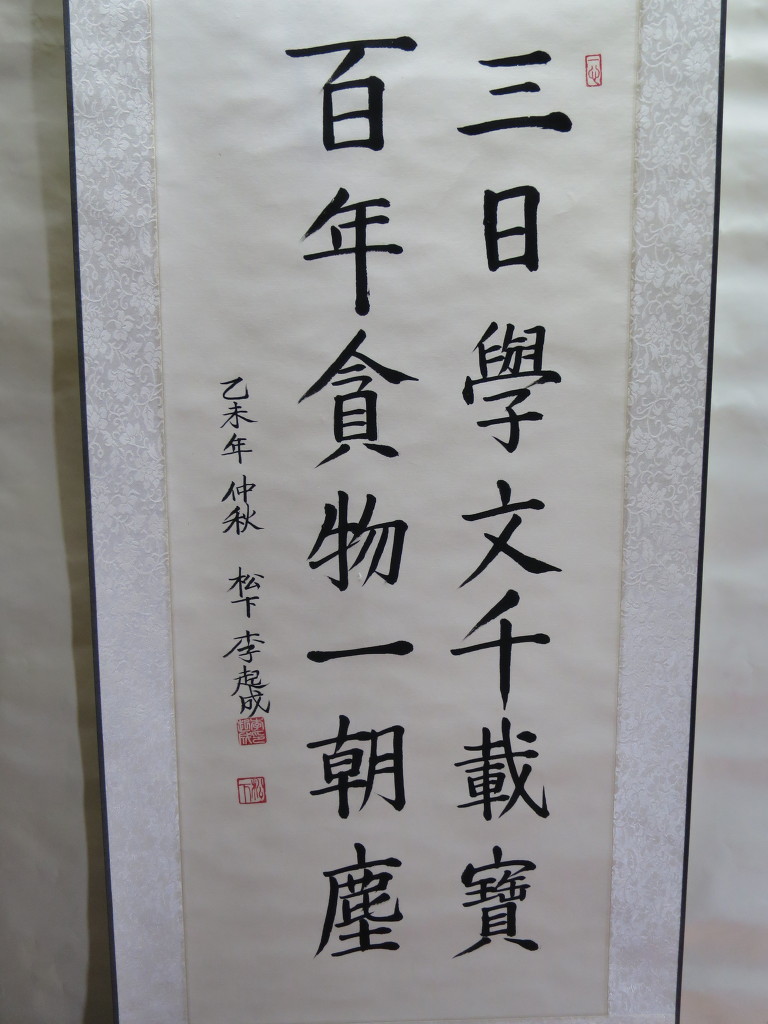 三日學文千載寶
百年貪物一朝塵
乙未年 仲秋 松下 李起成
一心
松下